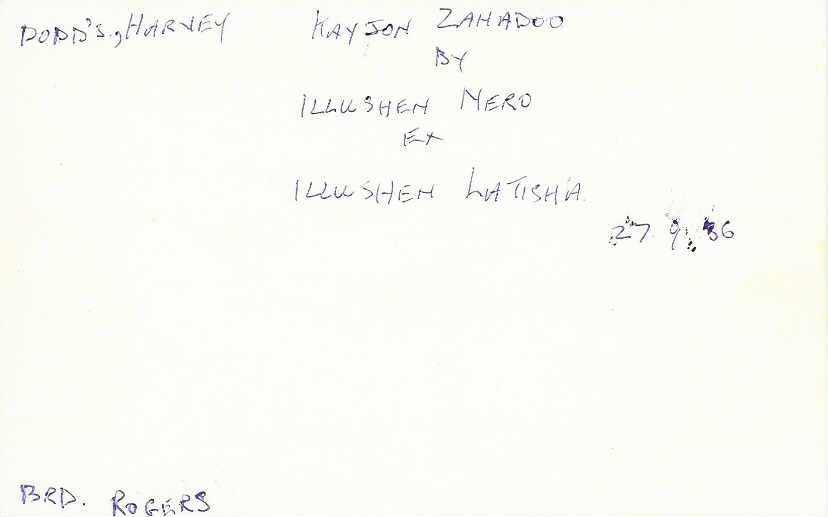 DODD'S., HARVEY KAYJON ZAHADOO
BY
ILLUSHEN NERO
EX
ILLUSHEN LATISHA.
27. 9. 86
BRD. ROGERS